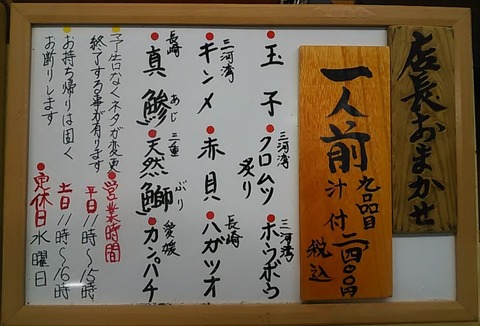 店長おまかせ
一人前 九品目 汁付 二四〇〇円 税込
玉子
三河湾 クロムツ炙り
三河湾 ホウボウ
三河湾 キンメ
赤貝
長崎 ハガツオ
長崎 真鯵 あじ
三重 天然鰤 ぶり
愛媛 カンパチ
予告なくネタが変更
終了する事が有ります
お持ち帰りは固く
お断りします
営業時間
平日 11時〜15時
土日 11時〜16時
定休日 水曜日